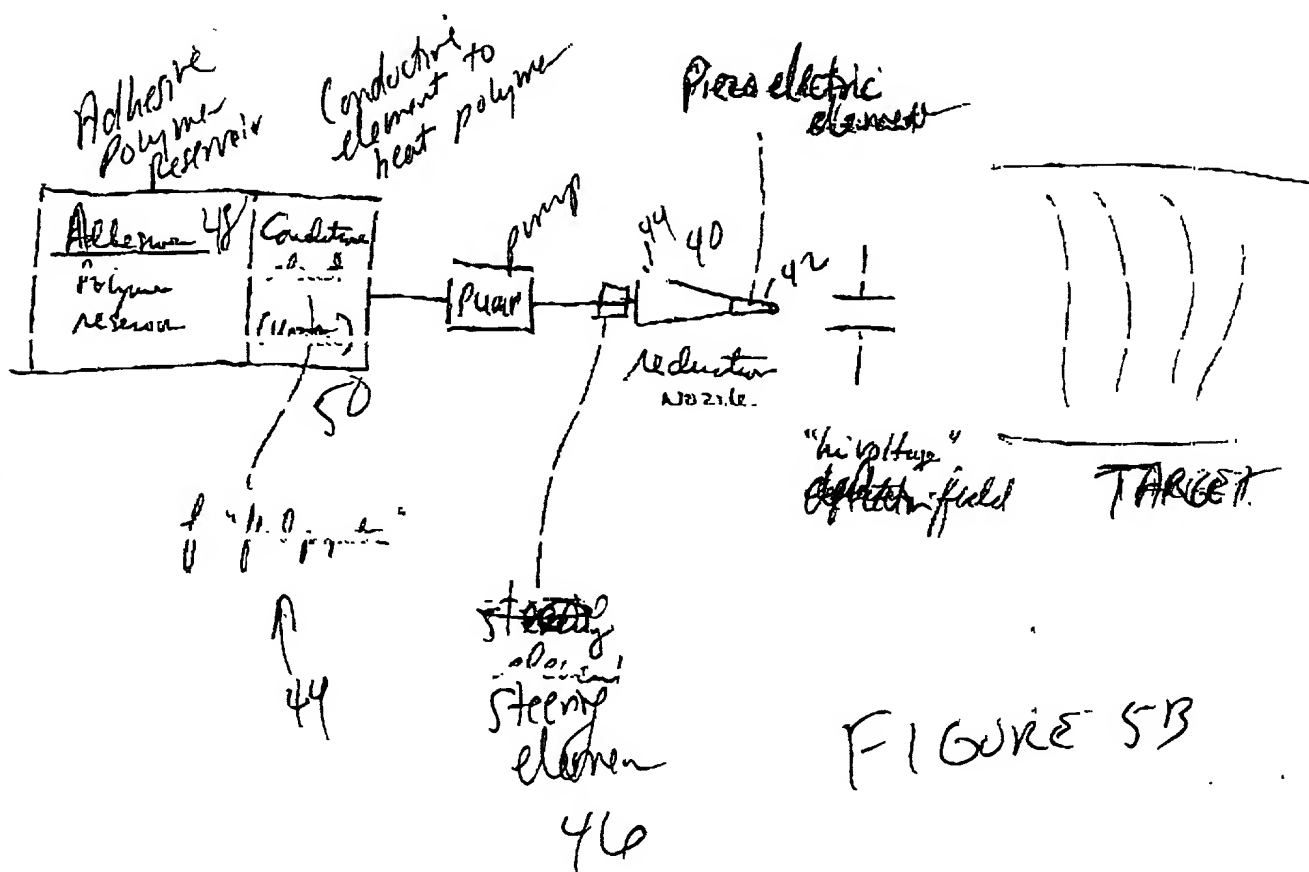 Adhesive
Polymer
Reservoir
Conductive
element to
heat polymer
Piezo electric
element
Adhesive 48
Polymer
reservoir
50
pump
Pump
44 40
42
reduction
nozzle.
"hi voltage"
deflection field
TARGET
44
steering
Steering
element
46
FIGURE 5B